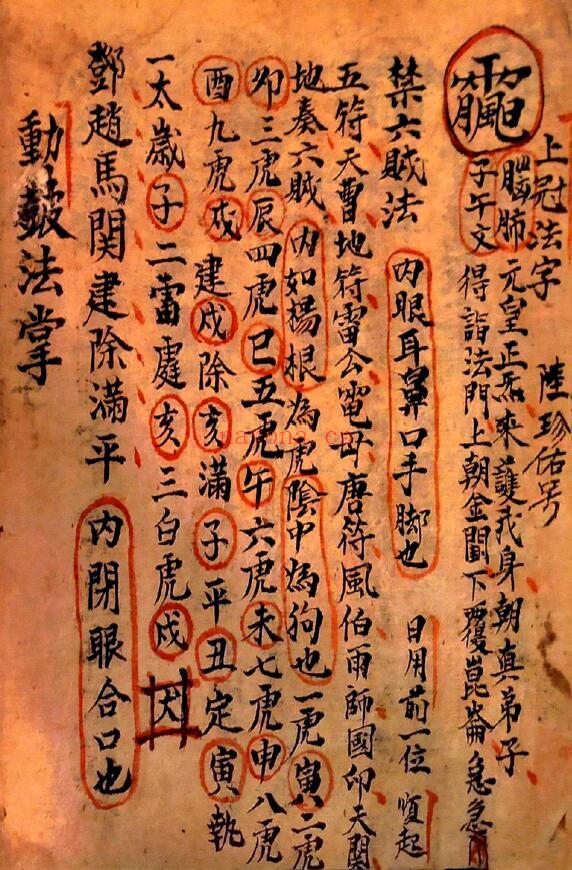 上冠法字 陸珍佑号
腦肺元皇正炁來護我身朝真弟子
子午文 得詣法門上朝金闕下覆崑崙急急
禁六賊法 内眼耳鼻口手脚也 日用前一位順起
五符天曹地符雷公電母唐符風伯雨師國印天関
地奏六賊 内如楊根為虎陰中為狗也 一虎寅二虎
卯三虎辰四虎巳五虎午六虎未七虎申八虎
酉九虎戍 建戍除亥滿子平丑定寅執
一太歲子二雷處亥三白虎戍 犬
鄧趙馬関建除滿平 内閉眼合口也
動鼓法掌